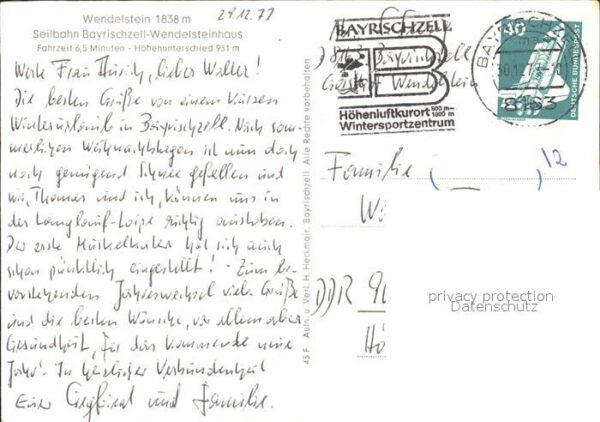 Wendelstein 1838 m
Seilbahn Bayrischzell-Wendelsteinhaus
Fahrzeit 6,5 Minuten - Höhenunterschied 931 m
29.12.77
Werte Frau, lieber Walter!
Die besten Grüße von einem kurzen
Winterurlaub in Bayrischzell. Nach som-
merlichen Weihnachtstagen ist nun doch
noch genügend Schnee gefallen und
wir, Thomas und ich, können uns in
der Langlauf-Loipe richtig austoben.
Der erste Muskelkater hat sich auch
schon pünktlich eingestellt! - Zum be-
vorstehenden Jahreswechsel viele Grüße
und die besten Wünsche, vor allem aber
Gesundheit, für das kommende neue
Jahr! In herzlicher Verbundenheit
Euer Siegfried und Familie.
43 F Aufn. u. Verl. H. Heckmair, Bayrischzell. Alle Rechte vorbehalten
BAYRISCHZELL
B
Höhenluftkurort 800 m-
Wintersportzentrum 1800 m
8163 Bayrischzell
Wendelstein
BAYRISCHZELL
30.12.77
8163
40
DEUTSCHE BUNDESPOST
Familie
12
DDR
privacy protection
Datenschutz